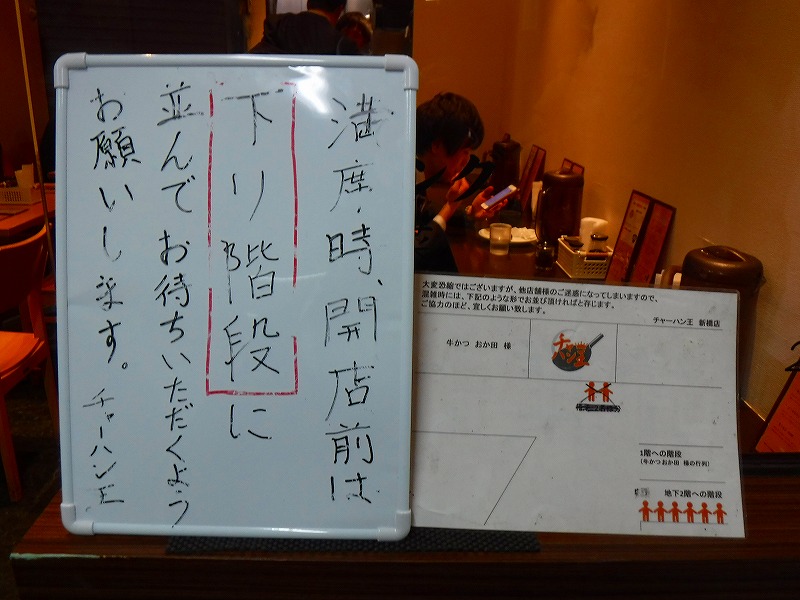 満席時、開店前は
下り階段に
並んでお待ちいただくよう
お願いします。 チャーハン王
大変恐縮ではございますが、他店舗様のご迷惑になってしまいますので、
混雑時には、下記のような形でお並び頂ければと存じます。
ご協力のほど、宜しくお願い致します。
チャーハン王 新橋店
牛かつ おか田 様
1階への階段
(牛かつ おか田 様の行列)
地下2階への階段